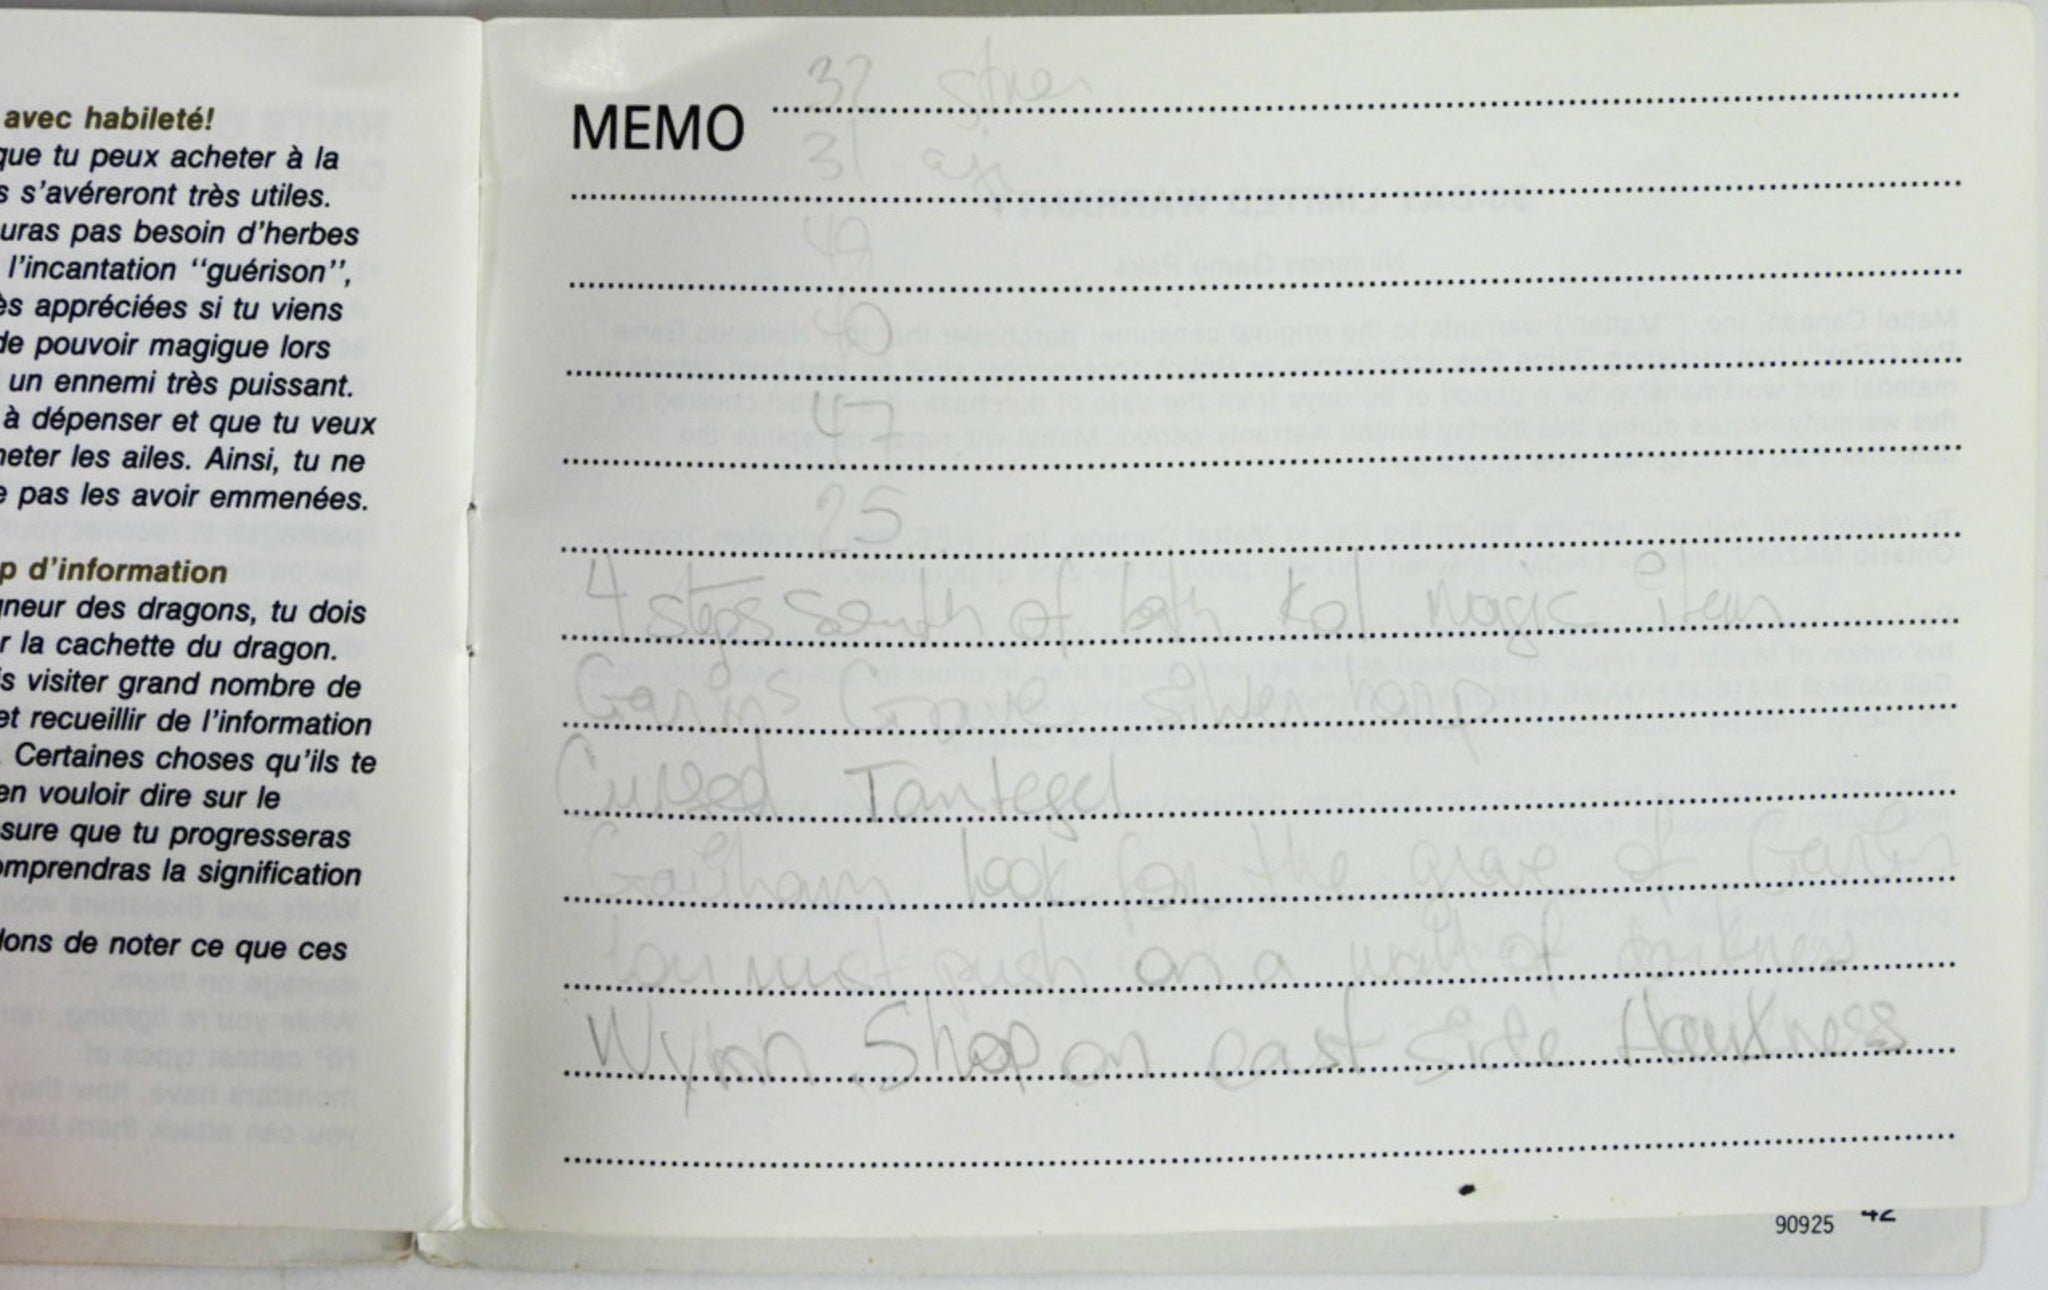 avec habileté!
que tu peux acheter à la
s s'avéreront très utiles.
uras pas besoin d'herbes
l'incantation ‘‘guérison’’,
ès appréciées si tu viens
de pouvoir magigue lors
un ennemi très puissant.
à dépenser et que tu veux
heter les ailes. Ainsi, tu ne
e pas les avoir emmenées.
p d'information
gneur des dragons, tu dois
r la cachette du dragon.
is visiter grand nombre de
et recueillir de l'information
. Certaines choses qu'ils te
en vouloir dire sur le
sure que tu progresseras
omprendras la signification
lons de noter ce que ces
37 stren
MEMO
31 agi
49
40
47
25
4 steps south of bath Kol magic item
Garins Grave silver harp
Cursed Tantegel
look for the grave of Garin
push on a wall of darkness
Wynn Shop on east side Haukness
90925
42